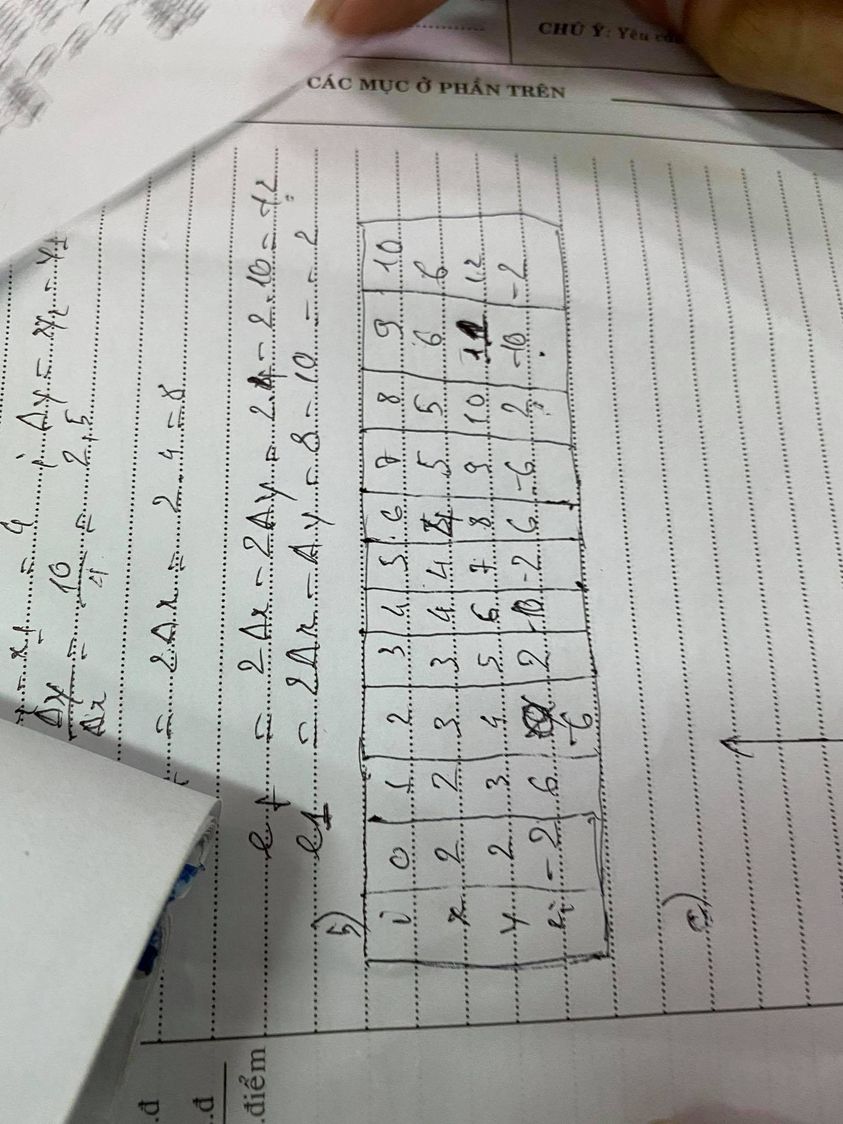 CHÚ Ý: Yêu
CÁC MỤC Ở PHẦN TRÊN
= 4 ; Δy =
Δy/Δx = 10/4 = 2,5
= 2Δx = 2.4 = 8
= 2Δx - 2Δy = 2.4 - 2.10 = -12
e1 = 2Δx - Δy = 8 - 10 = -2
b)
i 0 1 2 3 4 5 6 7 8 9 10
x 2 2 3 3 4 4 5 5 6 6
y 2 3 4 5 6 7 8 9 10 11 12
ei -2 6 -6 2 -10 -2 6 -6 2 -10 -2
c)
.đ
.đ
.điểm